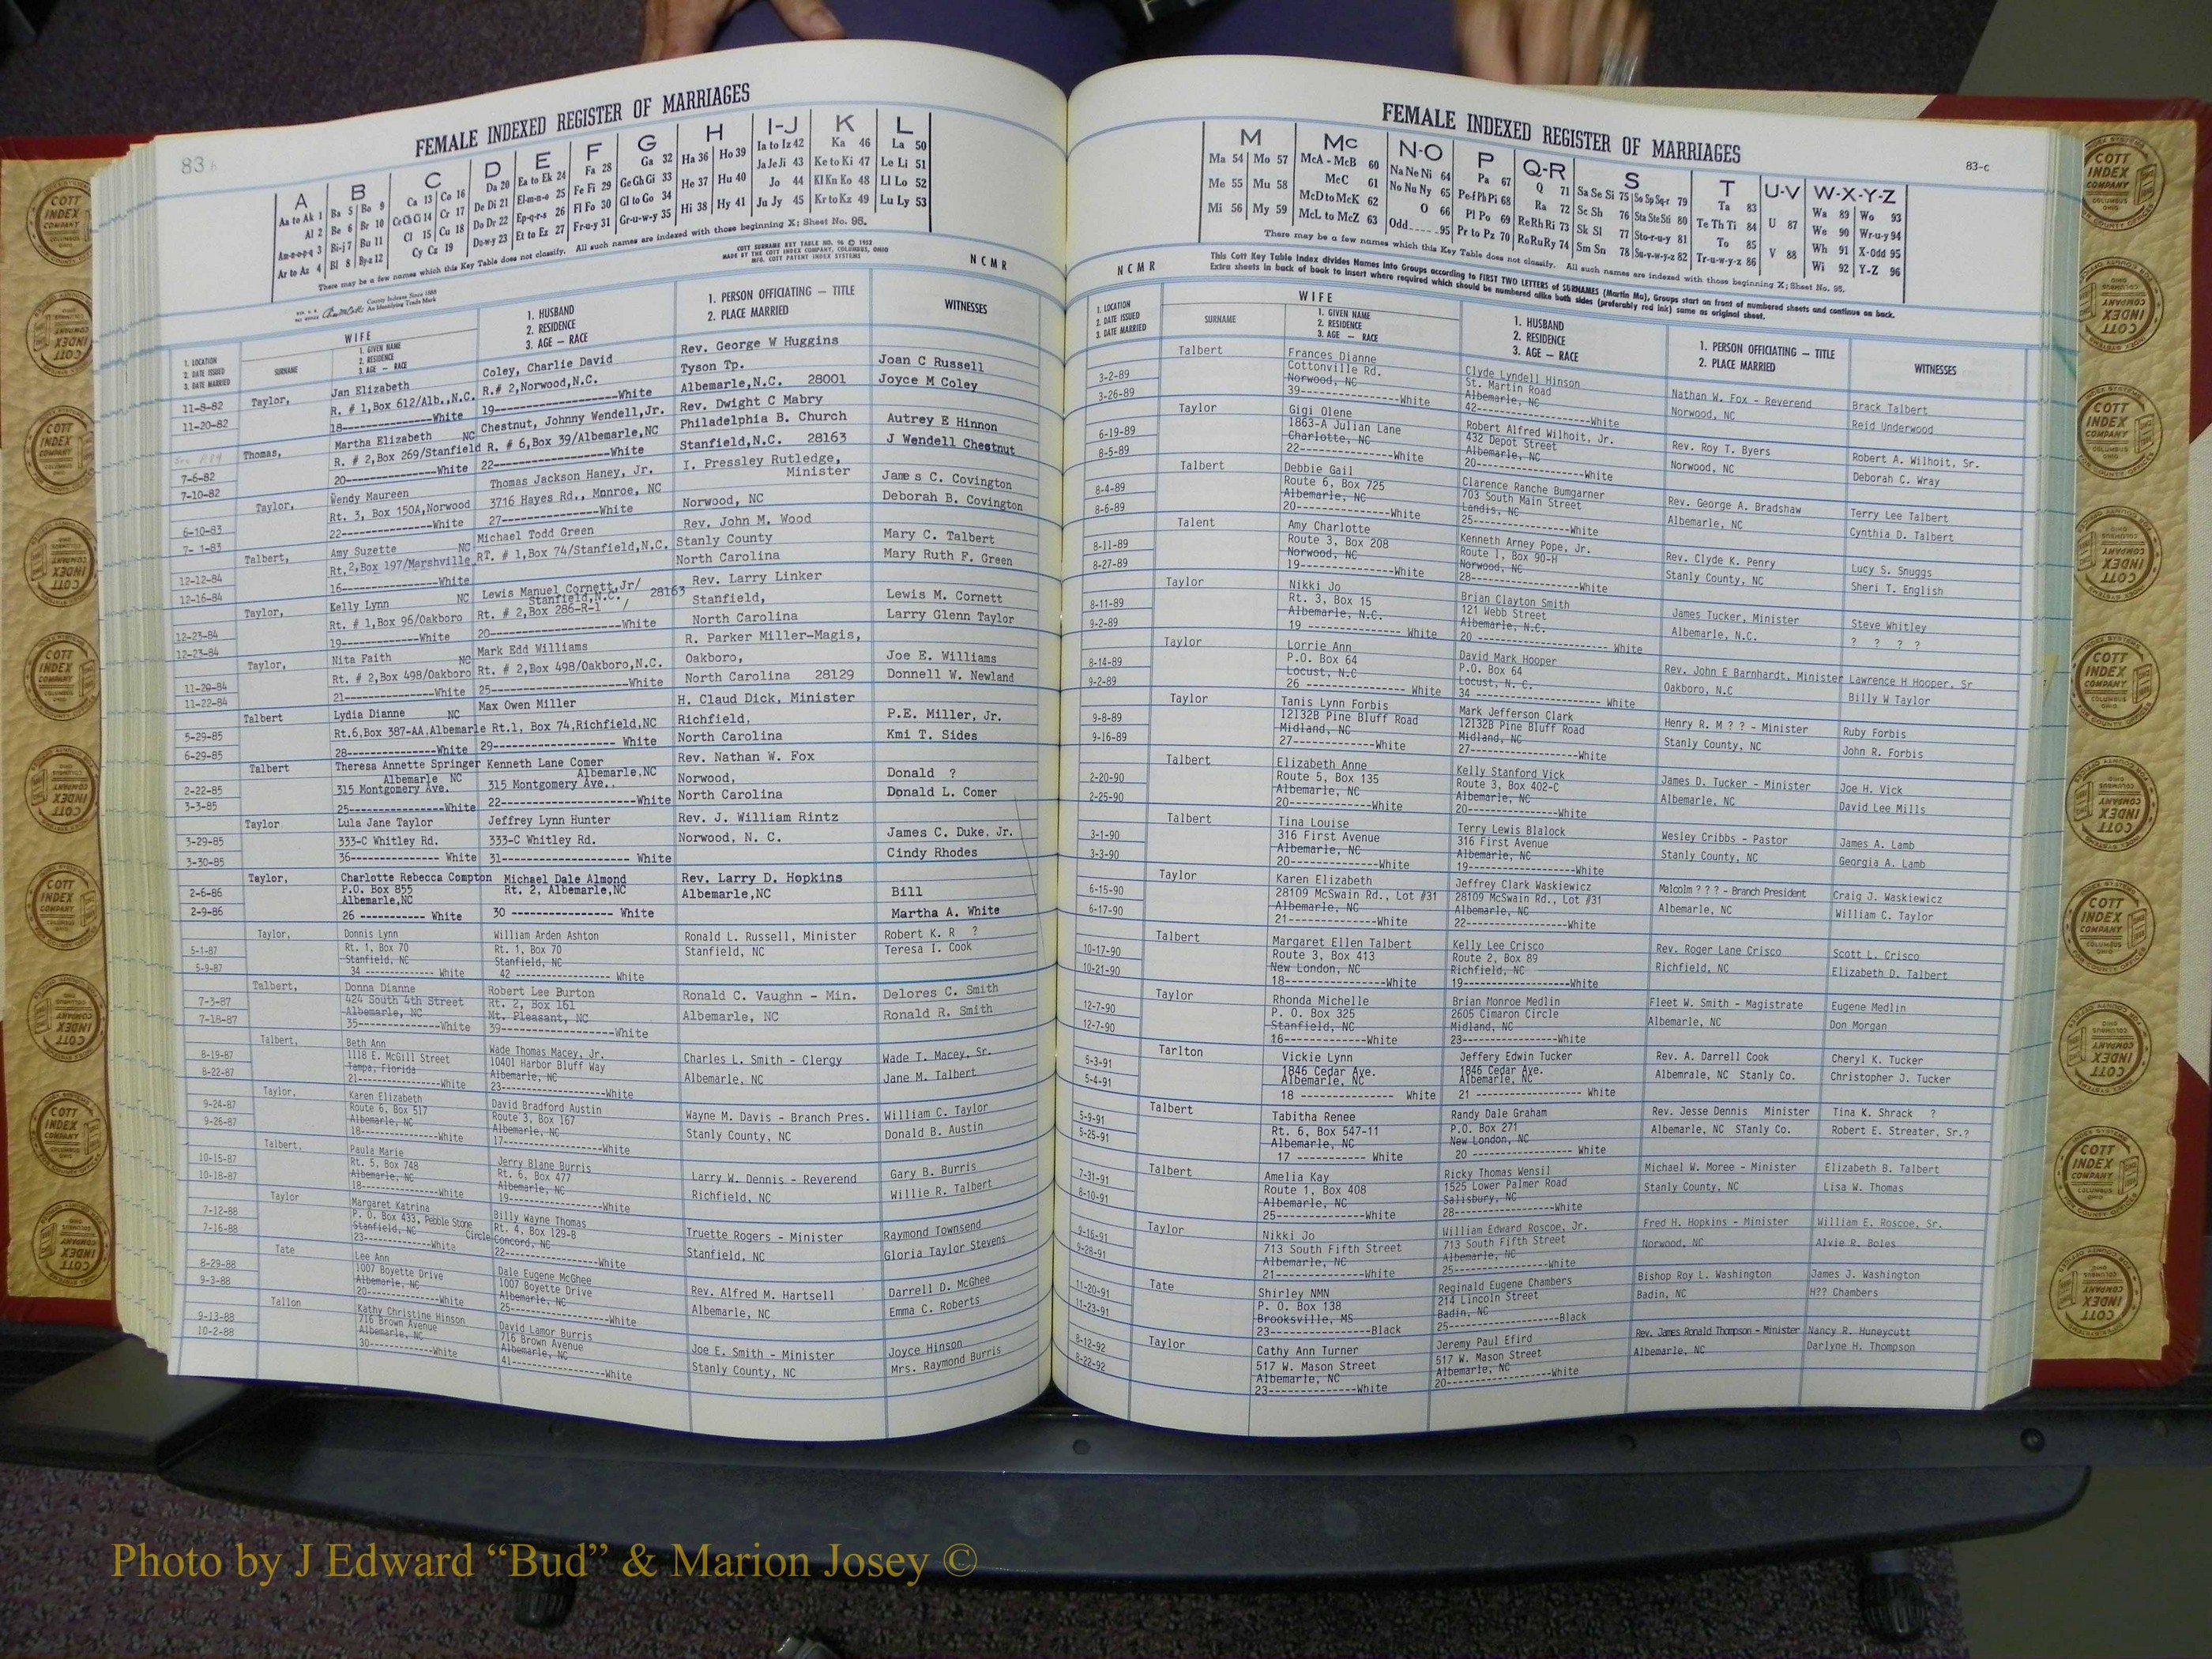 83 b
FEMALE INDEXED REGISTER OF MARRIAGES
A B C D E F G H I-J K L
Aa to Ak 1 Ba 5 Bo 9 Ca 13 Co 16 Da 20 Ea to Ek 24 Fa 28 Ga 32 Ha 36 Ho 39 Ia to Iz 42 Ka 46 La 50
Al 2 Be 6 Br 10 Ce Ch Ci 14 Cr 17 De Di 21 El-m-n-o 25 Fe Fi 29 Ge Gh Gi 33 He 37 Hu 40 Ja Je Ji 43 Ke to Ki 47 Le Li 51
Am-n-o-p-q 3 Bi-j 7 Bu 11 Cl 15 Cu 18 Do Dr 22 Ep-q-r-s 26 Fl Fo 30 Gl to Go 34 Hi 38 Hy 41 Jo 44 Kl Kn Ko 48 Ll Lo 52
Ar to Az 4 Bl 8 By-z 12 Cy Cz 19 Du-w-y 23 Et to Ez 27 Fr-u-y 31 Gr-u-w-y 35 Ju Jy 45 Kr to Kz 49 Lu Ly 53
There may be a few names which this Key Table does not classify. All such names are indexed with those beginning X; Sheet No. 95.
COTT SURNAME KEY TABLE NO. 96 © 1953
MADE BY THE COTT INDEX COMPANY, COLUMBUS, OHIO
MFG. COTT PATENT INDEX SYSTEMS
County Indexes Since 1888
An Identifying Trade Mark
N C M R
1. LOCATION
2. DATE ISSUED
3. DATE MARRIED
WIFE
SURNAME
1. GIVEN NAME
2. RESIDENCE
3. AGE — RACE
1. HUSBAND
2. RESIDENCE
3. AGE — RACE
1. PERSON OFFICIATING — TITLE
2. PLACE MARRIED
WITNESSES
Taylor, Jan Elizabeth Coley, Charlie David Rev. George W Huggins
11-8-82 R. # 1,Box 612/Alb.,N.C. R.# 2,Norwood,N.C. Tyson Tp. Joan C Russell
11-20-82 18----------------White 19----------------White Albemarle,N.C. 28001 Joyce M Coley
Thomas, Martha Elizabeth NC Chestnut, Johnny Wendell,Jr. Rev. Dwight C Mabry
7-6-82 R. # 2,Box 269/Stanfield R. # 6,Box 39/Albemarle,NC Philadelphia B. Church Autrey E Hinnon
7-10-82 20----------------White 22----------------White Stanfield,N.C. 28163 J Wendell Chestnut
Taylor, Wendy Maureen Thomas Jackson Haney, Jr. I. Pressley Rutledge, Minister
6-10-83 Rt. 3, Box 150A,Norwood 3716 Hayes Rd., Monroe, NC James C. Covington
7- 1-83 22----------------White 27----------------White Norwood, NC Deborah B. Covington
Talbert, Amy Suzette NC Michael Todd Green Rev. John M. Wood
12-12-84 Rt.2,Box 197/Marshville RT. # 1,Box 74/Stanfield,N.C. Stanly County Mary C. Talbert
12-16-84 16----------------White North Carolina Mary Ruth F. Green
Taylor, Kelly Lynn NC Lewis Manuel Cornett,Jr/ Stanfield,N.C. / 28163 Rev. Larry Linker
12-23-84 Rt. # 1,Box 96/Oakboro Rt. # 2,Box 286-R-1 Stanfield, Lewis M. Cornett
12-23-84 19----------------White 20----------------White North Carolina Larry Glenn Taylor
Taylor, Nita Faith NC Mark Edd Williams R. Parker Miller-Magis,
11-20-84 Rt. # 2,Box 498/Oakboro Rt. # 2,Box 498/Oakboro,N.C. Oakboro, Joe E. Williams
11-22-84 21----------------White 25----------------White North Carolina 28129 Donnell W. Newland
Talbert Lydia Dianne NC Max Owen Miller H. Claud Dick, Minister
5-29-85 Rt.6,Box 387-AA.Albemarle Rt.1, Box 74,Richfield,NC Richfield, P.E. Miller, Jr.
6-29-85 28----------------White 29---------------- White North Carolina Kmi T. Sides
Talbert Theresa Annette Springer Kenneth Lane Comer Rev. Nathan W. Fox
2-22-85 Albemarle NC 315 Montgomery Ave. Albemarle,NC 315 Montgomery Ave.. Norwood, Donald ?
3-3-85 25----------------White 22----------------White North Carolina Donald L. Comer
Taylor Lula Jane Taylor Jeffrey Lynn Hunter Rev. J. William Rintz
3-29-85 333-C Whitley Rd. 333-C Whitley Rd. Norwood, N. C. James C. Duke, Jr.
3-30-85 36-------------- White 31---------------- White Cindy Rhodes
Taylor, Charlotte Rebecca Compton Michael Dale Almond Rev. Larry D. Hopkins
2-6-86 P.O. Box 855 Albemarle,NC Rt. 2, Albemarle,NC Albemarle,NC Bill
2-9-86 26 ----------- White 30 ---------------- White Martha A. White
Taylor, Donnis Lynn William Arden Ashton Ronald L. Russell, Minister Robert K. R ?
5-1-87 Rt. 1, Box 70 Rt. 1, Box 70 Stanfield, NC Teresa I. Cook
Stanfield, NC Stanfield, NC
5-9-87 34 ------------ White 42 --------------- White
Talbert, Donna Dianne Robert Lee Burton
7-3-87 424 South 4th Street Rt. 2, Box 161 Ronald C. Vaughn - Min. Delores C. Smith
7-18-87 Albemarle, NC Mt. Pleasant, NC Albemarle, NC Ronald R. Smith
35--------------White 39----------------White
Talbert, Beth Ann Wade Thomas Macey, Jr.
8-19-87 1118 E. McGill Street 10401 Harbor Bluff Way Charles L. Smith - Clergy Wade T. Macey, Sr.
8-22-87 Tampa, Florida Albemarle, NC Albemarle, NC Jane M. Talbert
21--------------White 23----------------White
Taylor, Karen Elizabeth David Bradford Austin
9-24-87 Route 6, Box 517 Route 3, Box 167 Wayne M. Davis - Branch Pres. William C. Taylor
9-26-87 Albemarle, NC Albemarle, NC Stanly County, NC Donald B. Austin
18--------------White 17----------------White
Talbert, Paula Marie Jerry Blane Burris
10-15-87 Rt. 5, Box 748 Rt. 6, Box 477 Larry W. Dennis - Reverend Gary B. Burris
10-18-87 Albemarle, NC Albemarle, NC Richfield, NC Willie R. Talbert
18--------------White 19----------------White
Taylor Margaret Katrina Billy Wayne Thomas
7-12-88 P. O. Box 433, Pebble Stone Circle Rt. 4, Box 129-B Truette Rogers - Minister Raymond Townsend
7-16-88 Stanfield, NC Concord, NC Stanfield, NC Gloria Taylor Stevens
23--------------White 22----------------White
Tate Lee Ann Dale Eugene McGhee
8-29-88 1007 Boyette Drive 1007 Boyette Drive Rev. Alfred M. Hartsell Darrell D. McGhee
9-3-88 Albemarle, NC Albemarle, NC Albemarle, NC Emma C. Roberts
20--------------White 25----------------White
Tallon Kathy Christine Hinson David Lamor Burris
9-13-88 716 Brown Avenue 716 Brown Avenue Joe E. Smith - Minister Joyce Hinson
10-2-88 Albemarle, NC Albemarle, NC Stanly County, NC Mrs. Raymond Burris
30--------------White 41----------------White
83-c
FEMALE INDEXED REGISTER OF MARRIAGES
M Mc N-O P Q-R S T U-V W-X-Y-Z
Ma 54 Mo 57 McA - McB 60 Na Ne Ni 64 Pa 67 Q 71 Sa Se Si 75 So Sp Sq-r 79 Ta 83 U 87 Wa 89 Wo 93
Me 55 Mu 58 McC 61 No Nu Ny 65 Pe-f Ph Pi 68 Ra 72 Sc Sh 76 Sta Ste Sti 80 Te Th Ti 84 We 90 Wr-u-y 94
Mi 56 My 59 McD to McK 62 O 66 Pl Po 69 Re Rh Ri 73 Sk Sl 77 Sto-r-u-y 81 To 85 V 88 Wh 91 X-Odd 95
McL to McZ 63 Odd 95 Pr to Pz 70 Ro Ru Ry 74 Sm Sn 78 Su-v-w-y-z 82 Tr-u-w-y-z 86 Wi 92 Y-Z 96
There may be a few names which this Key Table does not classify. All such names are indexed with those beginning X; Sheet No. 95.
N C M R
This Cott Key Table Index divides Names into Groups according to FIRST TWO LETTERS of SURNAMES (Martin Ma), Groups start on front of numbered sheets and continue on back.
Extra sheets in back of book to insert where required which should be numbered alike both sides (preferably red ink) same as original sheet.
1. LOCATION
2. DATE ISSUED
3. DATE MARRIED
WIFE
SURNAME
1. GIVEN NAME
2. RESIDENCE
3. AGE — RACE
1. HUSBAND
2. RESIDENCE
3. AGE — RACE
1. PERSON OFFICIATING — TITLE
2. PLACE MARRIED
WITNESSES
Talbert Frances Dianne Clyde Lyndell Hinson
3-2-89 Cottonville Rd. St. Martin Road Nathan W. Fox - Reverend Brack Talbert
3-26-89 Norwood, NC Albemarle, NC Norwood, NC Reid Underwood
39--------------White 42----------------White
Taylor Gigi Olene Robert Alfred Wilhoit, Jr.
6-19-89 1863-A Julian Lane 432 Depot Street Rev. Roy T. Byers Robert A. Wilhoit, Sr.
8-5-89 Charlotte, NC Albemarle, NC Norwood, NC Deborah C. Wray
22--------------White 20----------------White
Talbert Debbie Gail Clarence Ranche Bumgarner
8-4-89 Route 6, Box 725 703 South Main Street Rev. George A. Bradshaw Terry Lee Talbert
8-6-89 Albemarle, NC Landis, NC Albemarle, NC Cynthia D. Talbert
20--------------White 25----------------White
Talent Amy Charlotte Kenneth Arney Pope, Jr.
8-11-89 Route 3, Box 208 Route 1, Box 90-H Rev. Clyde K. Penry Lucy S. Snuggs
8-27-89 Norwood, NC Norwood, NC Stanly County, NC Sheri T. English
19--------------White 28----------------White
Taylor Nikki Jo Brian Clayton Smith
8-11-89 Rt. 3, Box 15 121 Webb Street James Tucker, Minister Steve Whitley
9-2-89 Albemarle, N.C. Albemarle, N.C. Albemarle, N.C. ? ? ? ?
19 -------------- White 20 ---------------- White
Taylor Lorrie Ann David Mark Hooper
8-14-89 P.O. Box 64 P.O. Box 64 Rev. John E Barnhardt, Minister Lawrence H Hooper, Sr
9-2-89 Locust, N.C Locust, N. C. Oakboro, N.C Billy W Taylor
26 -------------- White 34 ---------------- White
Taylor Tanis Lynn Forbis Mark Jefferson Clark
9-8-89 12132B Pine Bluff Road 12132B Pine Bluff Road Henry R. M ? ? - Minister Ruby Forbis
9-16-89 Midland, NC Midland, NC Stanly County, NC John R. Forbis
27--------------White 27----------------White
Talbert Elizabeth Anne Kelly Stanford Vick
2-20-90 Route 5, Box 135 Route 3, Box 402-C James D. Tucker - Minister Joe H. Vick
2-25-90 Albemarle, NC Albemarle, NC Albemarle, NC David Lee Mills
20--------------White 20----------------White
Talbert Tina Louise Terry Lewis Blalock
3-1-90 316 First Avenue 316 First Avenue Wesley Cribbs - Pastor James A. Lamb
3-3-90 Albemarle, NC Albemarle, NC Stanly County, NC Georgia A. Lamb
20--------------White 19----------------White
Taylor Karen Elizabeth Jeffrey Clark Waskiewicz
6-15-90 28109 McSwain Rd., Lot #31 28109 McSwain Rd., Lot #31 Malcolm ? ? ? - Branch President Craig J. Waskiewicz
6-17-90 Albemarle, NC Albemarle, NC Albemarle, NC William C. Taylor
21--------------White 22----------------White
Talbert Margaret Ellen Talbert Kelly Lee Crisco
10-17-90 Route 3, Box 413 Route 2, Box 89 Rev. Roger Lane Crisco Scott L. Crisco
10-21-90 New London, NC Richfield, NC Richfield, NC Elizabeth D. Talbert
18--------------White 19----------------White
Taylor Rhonda Michelle Brian Monroe Medlin Fleet W. Smith - Magistrate Eugene Medlin
12-7-90 P. O. Box 325 2605 Cimaron Circle
12-7-90 Stanfield, NC Midland, NC Albemarle, NC Don Morgan
16--------------White 23----------------White
Tarlton Vickie Lynn Jeffery Edwin Tucker Rev. A. Darrell Cook Cheryl K. Tucker
5-3-91 1846 Cedar Ave. 1846 Cedar Ave.
5-4-91 Albemarle, NC Albemarle, NC Albemrale, NC Stanly Co. Christopher J. Tucker
18 -------------- White 21 -------------- White
Talbert Tabitha Renee Randy Dale Graham Rev. Jesse Dennis Minister Tina K. Shrack ?
5-9-91 Rt. 6, Box 547-11 P.O. Box 271
5-25-91 Albemarle, NC New London, NC Albemarle, NC STanly Co. Robert E. Streater, Sr.?
17 ----------- White 20 -------------- White
Talbert Amelia Kay Ricky Thomas Wensil Michael W. Moree - Minister Elizabeth B. Talbert
7-31-91 Route 1, Box 408 1525 Lower Palmer Road Stanly County, NC Lisa W. Thomas
8-10-91 Albemarle, NC Salisbury, NC
25--------------White 28----------------White
Taylor Nikki Jo William Edward Roscoe, Jr. Fred H. Hopkins - Minister William E. Roscoe, Sr.
9-16-91 713 South Fifth Street 713 South Fifth Street Norwood, NC Alvie R. Boles
9-28-91 Albemarle, NC Albemarle, NC
21--------------White 25----------------White
Tate Shirley NMN Reginald Eugene Chambers Bishop Roy L. Washington James J. Washington
11-20-91 P. O. Box 138 214 Lincoln Street Badin, NC H?? Chambers
11-23-91 Brooksville, MS Badin, NC
23--------------Black 25----------------Black
Taylor Cathy Ann Turner Jeremy Paul Efird Rev. James Ronald Thompson - Minister Nancy R. Huneycutt
8-12-92 517 W. Mason Street 517 W. Mason Street Albemarle, NC Darlyne H. Thompson
8-22-92 Albemarle, NC Albemarle, NC
23--------------White 20----------------White
COTT INDEX COMPANY
Photo by J Edward “Bud” & Marion Josey ©